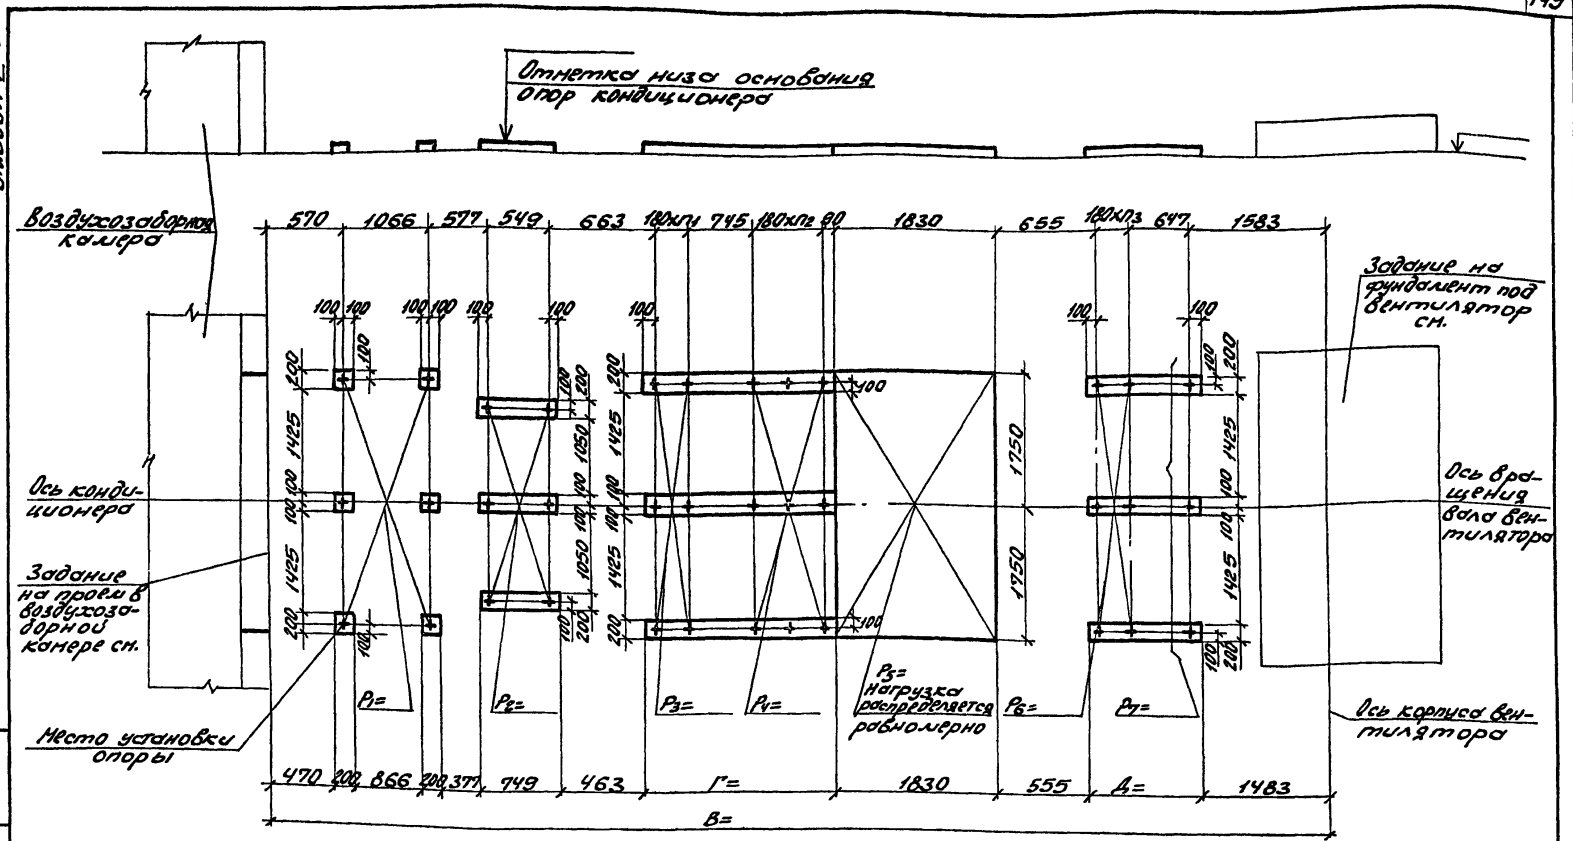 149
Отметка низа основания
опор кондиционера
Воздухозаборная
камера
570 1066 577 549 663 180хп1 745 180хп2 90 1830 655 180хп3 647 1583
Задание на
фундамент под
вентилятор
см.
100 100 100 100 100 100 100 100 100
200 1425 100 100 1425 200
100 100
100 200 1050 100 100 1050 200 100
200 1425 100 100 1425 200
100 100
1750 1750
100 200 1425 100 100 1425 200 100
Ось конди-
ционера
Ось вра-
щения
вала вен-
тилятора
Задание
на проем в
воздухоза-
борной
камере см.
Место установки
опоры
P1=
P2=
P3=
P4=
P5=
Нагрузка
распределяется
равномерно
P6=
P7=
Ось корпуса вен-
тилятора
470 200 866 200 377 749 463 Г= 1830 555 Д= 1483
В=